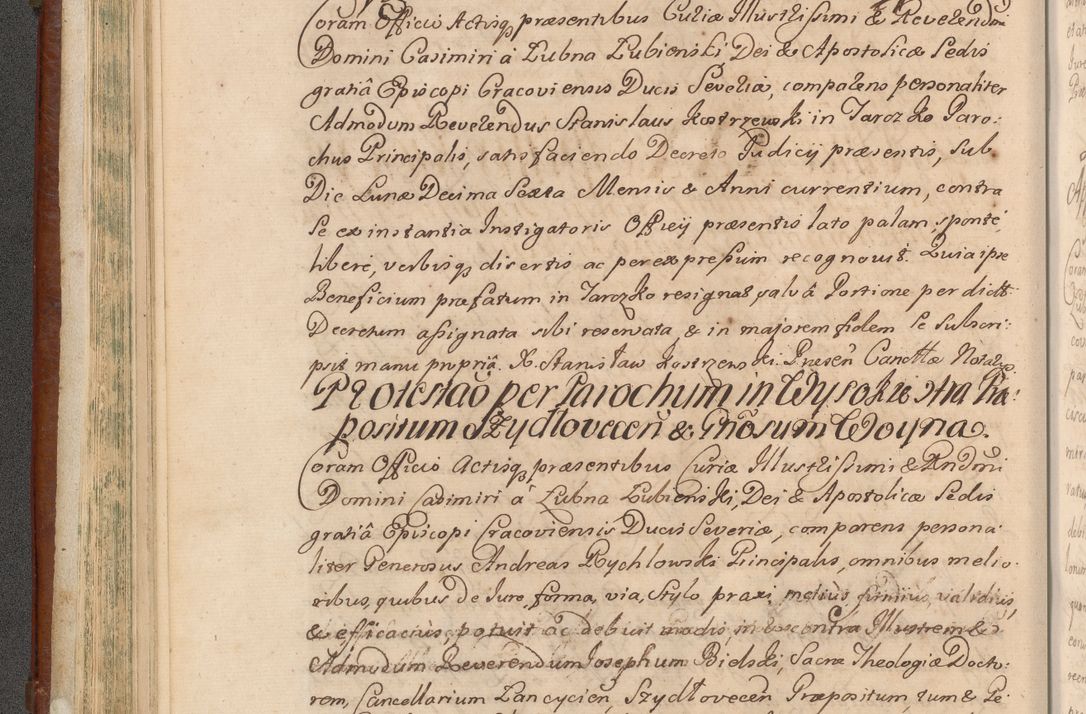 Coram Officio Actisq̢ præsentibus Curiæ Illustrissimi & Reverendmi
Domini Casimiri à Lubna Lubienski Dei & Apostolicæ Sedis
gratiâ Episcopi Cracoviensis Ducis Severiæ, comparens personaliter
Admodum Reverendus Stanislaus Kostrzewski in Jarozko Paro-
chus Principalis, satisfaciendo Decreto Judicij præsentis, sub
Die Lunæ Decima Sexta Mensis & Anni currentium, contra
Se ex instantia Instigatoris Officij præsentis lato palam, sponté,
liberé, verbisq̢ disertis ac per expressum recognovit. Quia ipse
Beneficium præfatum in Jarozko resignat salvâ Portione per dictt:
Decretum assignata sibi reservata, & in majorem fidem se subscri-
psit manu propriâ. X. Stanisław Kostrzewski. Præsen̄ Canclltæ Notaq̢.
Protestaõ per Parochum in Wysokie ɔtra Præ-
positum Szydlovecen̄ & Gñosum Woyna.
Coram Officio Actisq̢ præsentibus Curiæ Illustrissimi & Rndmi
Domini Casimiri à Lubna Lubienski, Dei & Apostolicæ Sedis
gratiâ Episcopi Cracoviensis Ducis Severiæ, comparens persona-
liter Generosus Andreas Rychlowski Principalis, omnibus melio-
ribus, quibus de Jure, forma, via, stylo praxi melius, firmius, validius,
& efficacius, potuit ac debuit modis in & contra Illustrem &
Admodum Reverendum Josephum Bielski, Sacræ Theologiæ Docto-
rem, Cancellarium Lancycien̄, Szydłovecen̄ Præpositum, tum & Ge-